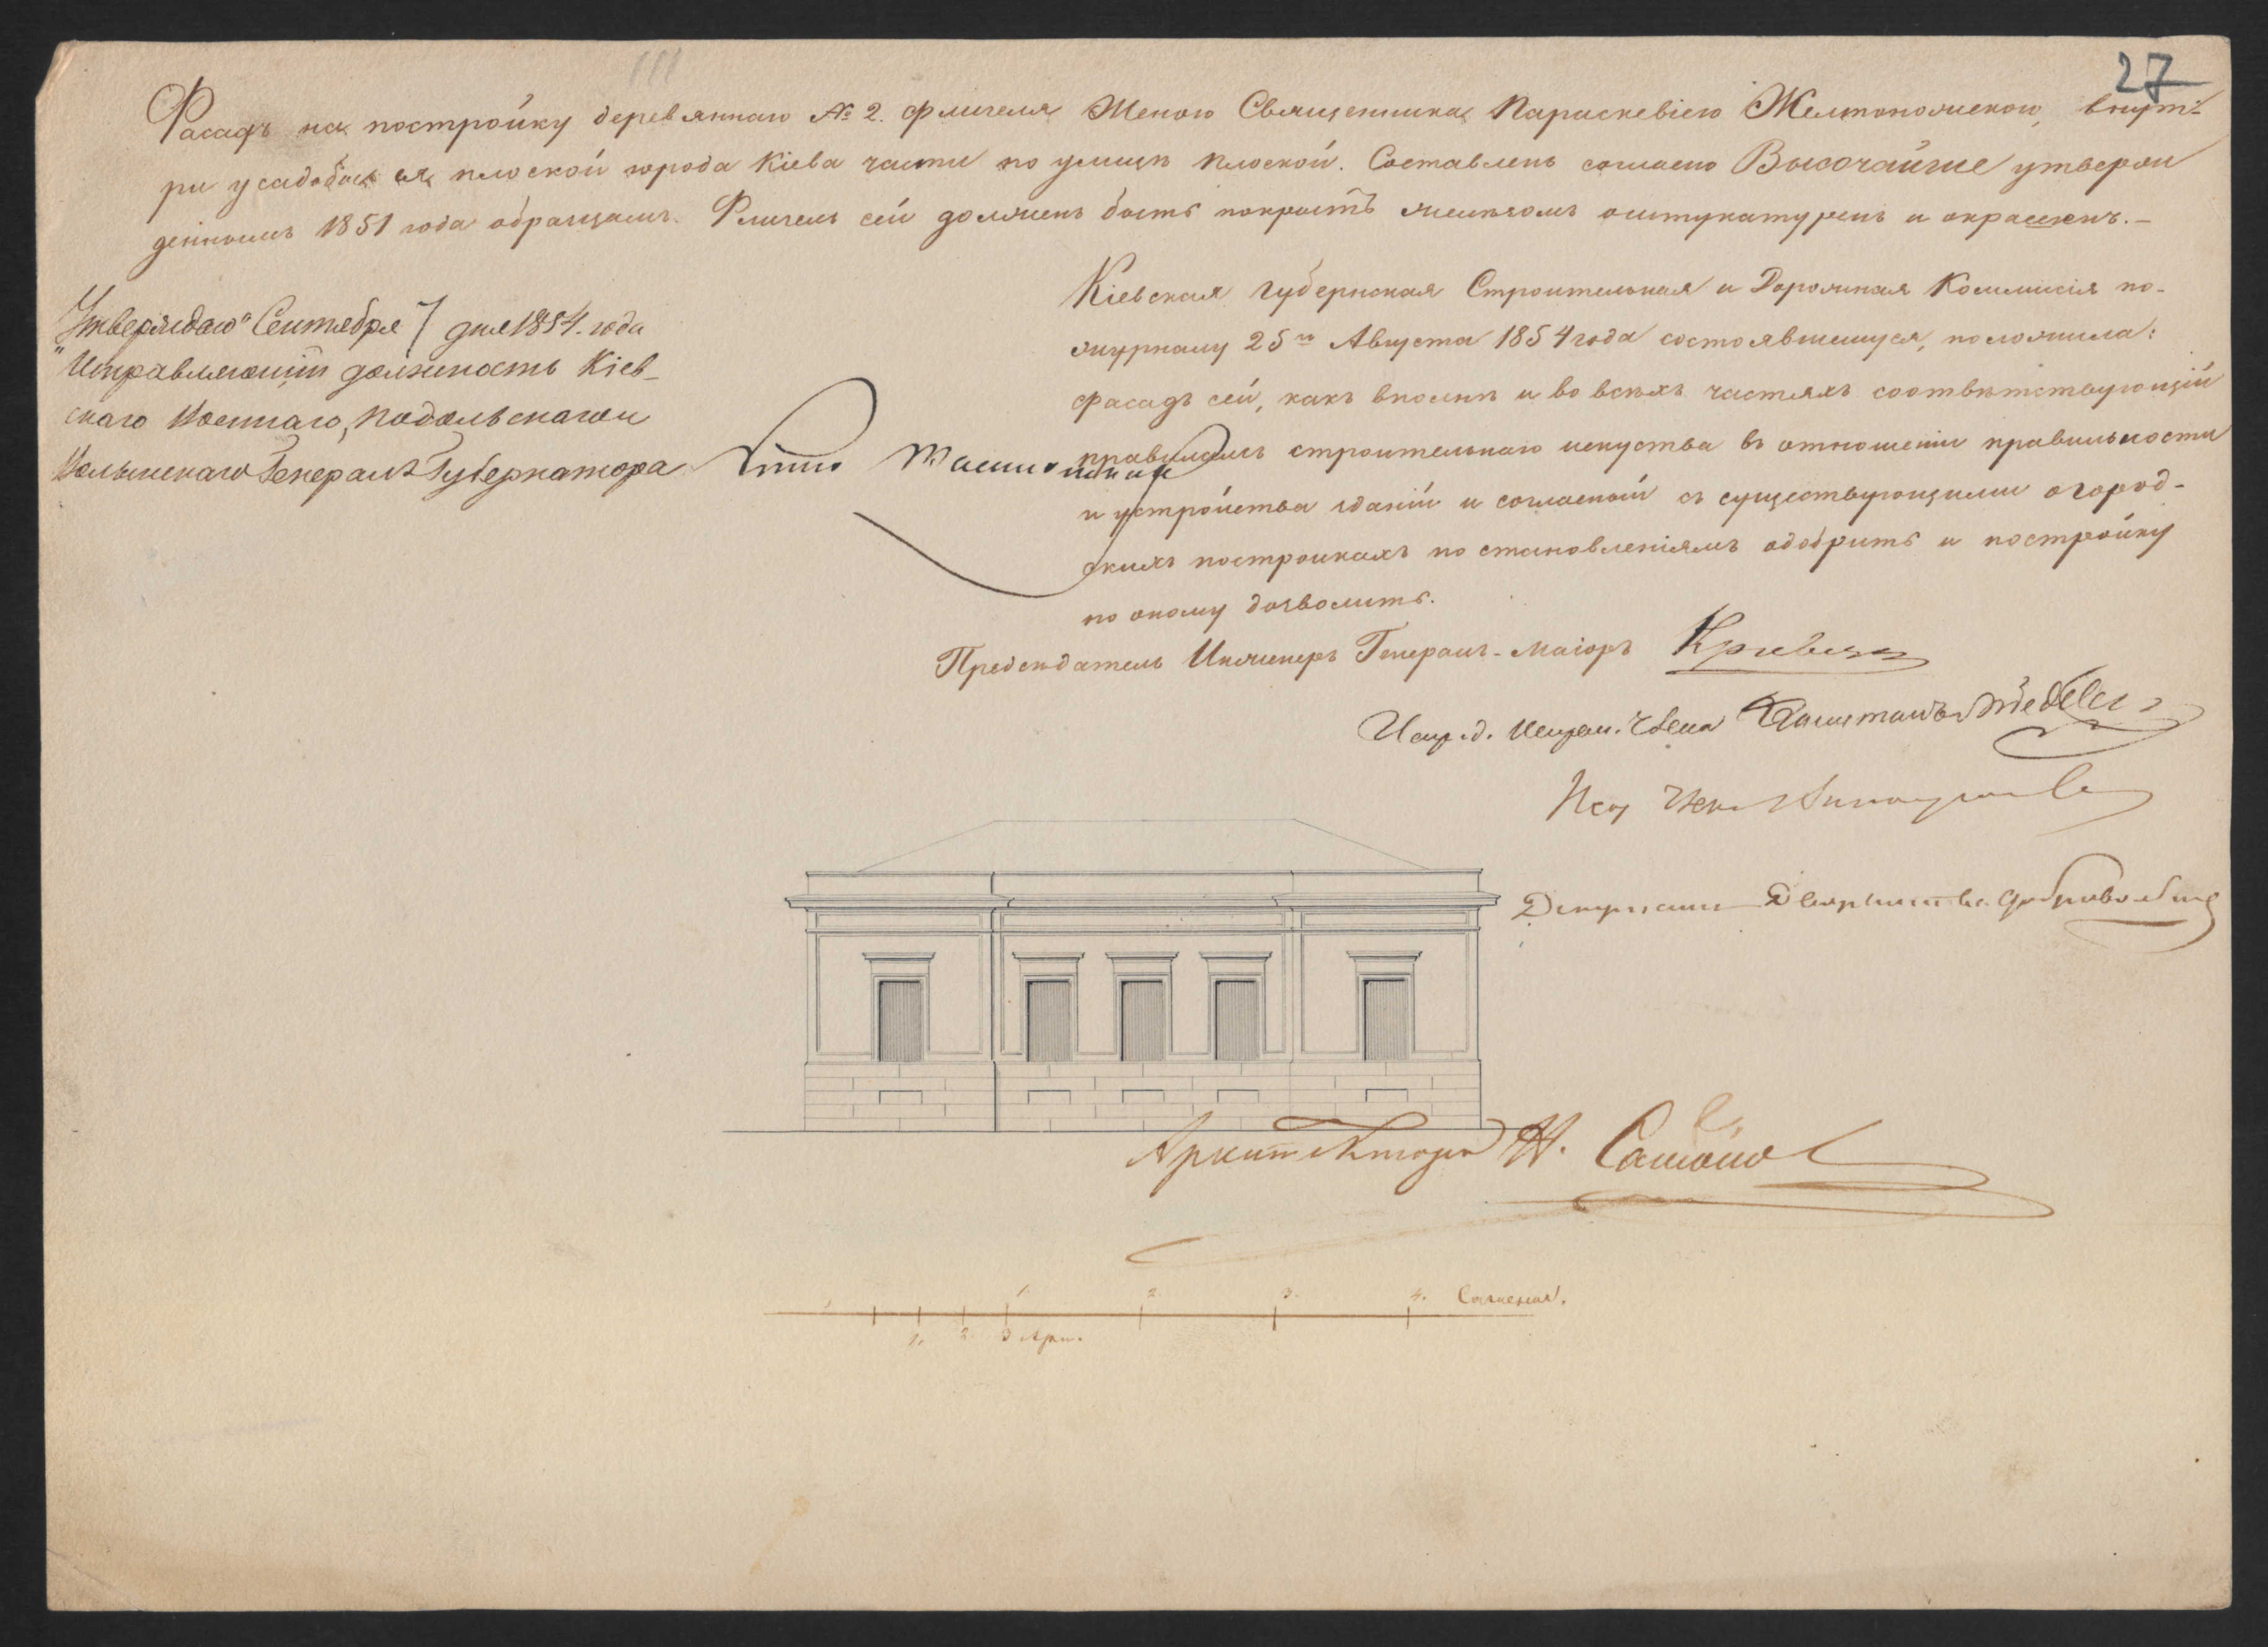 27
Фасадъ на постройку деревяннаго № 2. флигеля Женою Священника Параскевіею Желтоножскою, внут-
ри усадьбы ея плоской города Кіева части по улицѣ плоской. Составленъ согласно Высочайше утверж
деннымъ 1851 года образцамъ. Флигель сей долженъ быть покрытъ желѣзомъ оштукатуренъ и окрашенъ.-
„Утверждаю" Сентября 7 дня 1854. года
„Исправляющій должность Кіев-
скаго Военнаго, Подольскаго и
Волынскаго Генералъ Губернатора
Кіевская Губернская Строительная и Дорожная Коммисія по-
журналу 25го Августа 1854 года состоявшемуся, положила:
фасадъ сей, какъ вполнѣ и во всѣхъ частяхъ соотвѣтствующій
правиламъ строительнаго искуства въ отношеніи правильности
и устройства зданій и согласный съ существующими о город-
скихъ постройкахъ постановленіямъ одобрить и постройку
по оному дозволить.
Предсѣдатель Инженеръ Генералъ-Маіоръ
Испр.д. Искус. Члена Капитанъ
Иск Член
Депутатъ Дворянства
Архитекторъ
1. 2. 3. 4. Сажения.
1. 2. 3 Арш.